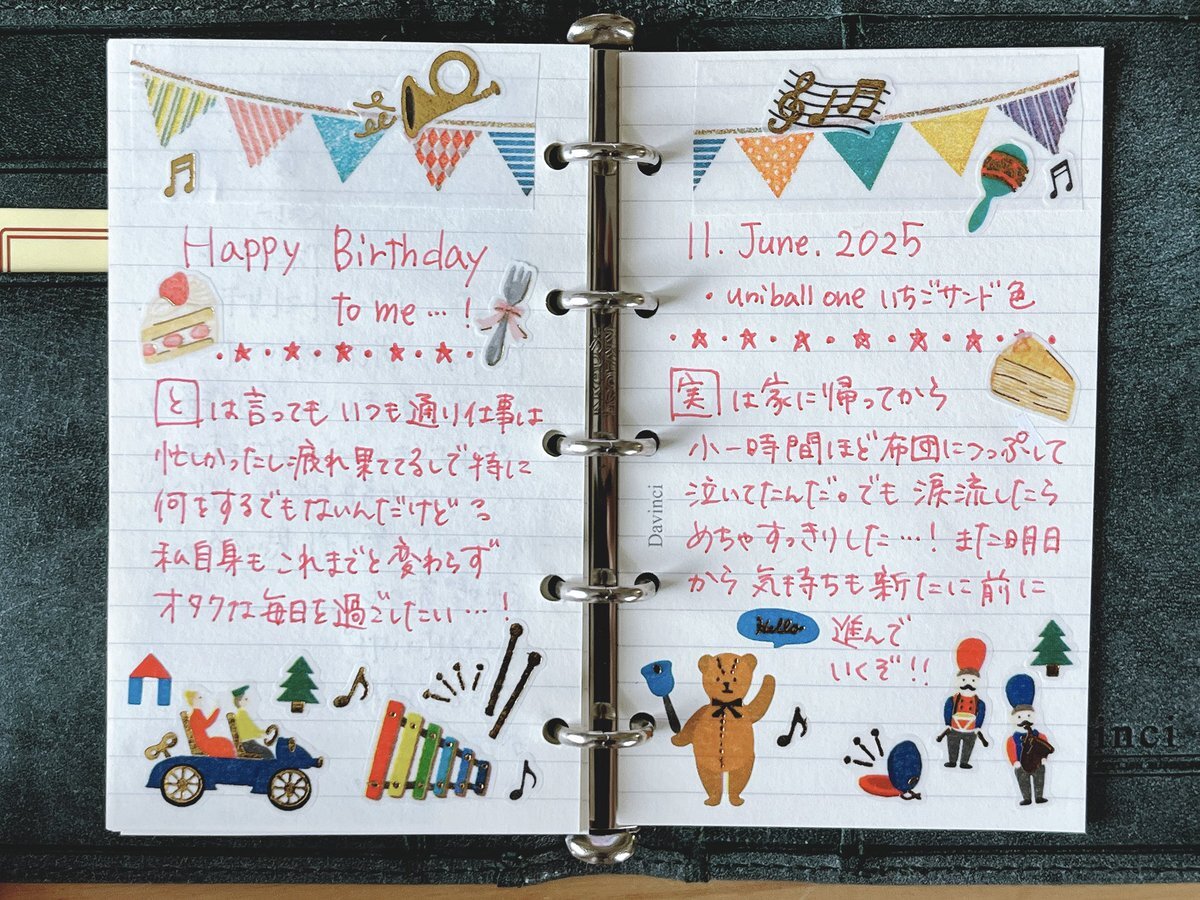 Happy Birthday
to me…!
とは言ってもいつも通り仕事は
忙しかったし疲れ果ててるしで特に
何をするでもないんだけどっ
私自身もこれまでと変わらず
オタクな毎日を過ごしたい…!
11. June. 2025
・uniball one いちごサンド色
実は家に帰ってから
小一時間ほど布団につっぷして
泣いてたんだ。でも涙流したら
めちゃすっきりした…!また明日
から気持ちも新たに前に
進んで
いくぞ!!
Hello
Davinci
inci